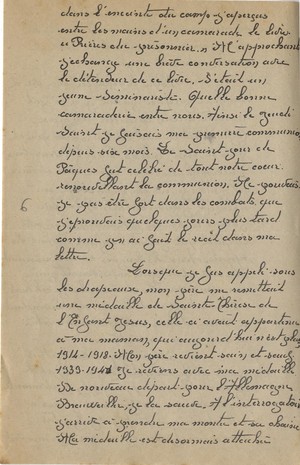 dans l'enceinte du camp j'aperçus
entre les mains d'un camarade le livre
"Prières du prisonnier." M'approchant
j'échange une brève conversation avec
le détenteur de ce livre. C'était un
jeune séminariste. Quelle bonne
camaraderie entre nous. Ainsi le Jeudi-
Saint je faisais ma première communion
depuis six mois. Le Saint jour de
Pâques fut célébré de tout notre cœur
renouvellant la communion. Ne pouvais
je pas être fort dans les combats que
j'éprouvais quelques jours plus tard
comme j'en ai fait le récit dans ma
lettre.
Lorsque je fus appelé sous
les drapeaux, mon père me remettait
une médaille de Sainte Thérèse de
l'Enfant Jésus, celle-ci avait appartenu
à ma maman, qui aujourd'hui n'est plus
1914-1918. Mon père revient sain et sauf
1939-194 je reviens avec ma médaille
De nouveau départ pour l'Allemagne
je la sauve. A l'interrogatoire
j'arrive à prendre ma montre et sa chaine
Ma médaille est désormais attachée
6